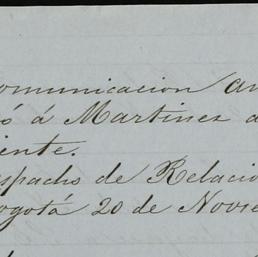 omunicacion an
ó á Martinez a
iente.
spacho de Relacio
ogotá 20 de Novie